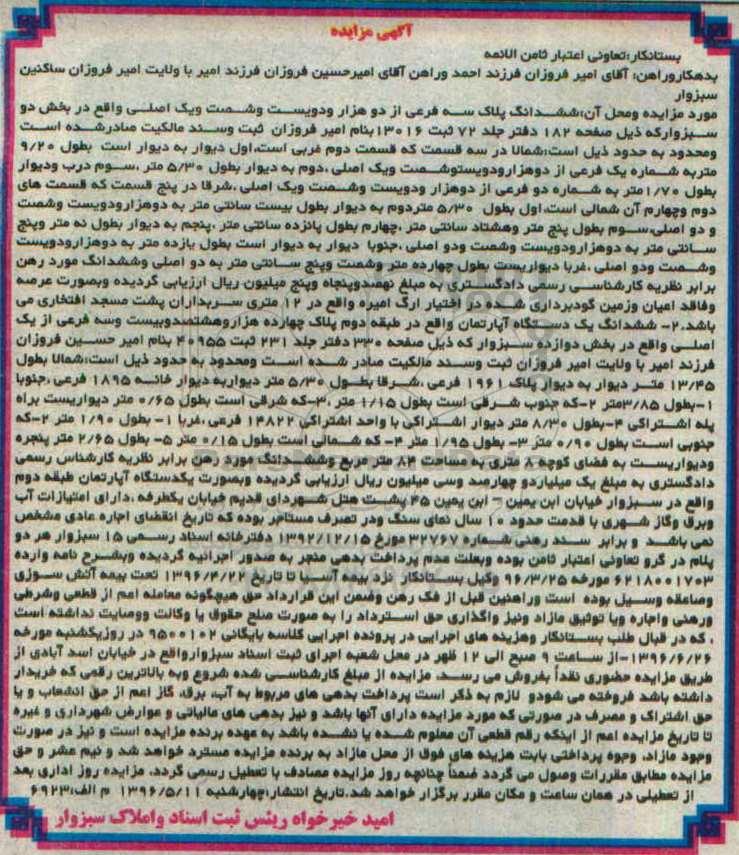 آگهی مزایده
بستانکار:تعاونی اعتبار ثامن الائمه
بدهکاروراهن: آقای امیر فروزان فرزند احمد وراهن آقای امیرحسین فروزان فرزند امیر با ولایت امیر فروزان ساکنین
سبزوار
مورد مزایده ومحل آن:ششدانگ پلاک سه فرعی از دو هزار ودویست وشصت ویک اصلی واقع در بخش دو
سبزوارکه ذیل صفحه ۱۸۲ دفتر جلد ۷۲ ثبت ۱۳۰۱۶ بنام امیر فروزان ثبت وسند مالکیت صادرشده است
ومحدود به حدود ذیل است:شمالا در سه قسمت که قسمت دوم غربی است،اول دیوار به دیوار است بطول ۹/۲۰
متربه شماره یک فرعی از دوهزارودویستوشصت ویک اصلی ،دوم به دیوار بطول ۵/۳۰ متر ،سوم درب ودیوار
بطول ۱/۷۰ متر به شماره دو فرعی از دوهزار ودویست وشصت ویک اصلی ،شرقا در پنج قسمت که قسمت های
دوم وچهارم آن شمالی است،اول بطول ۵/۳۰ متردوم به دیوار بطول بیست سانتی متر به دوهزارودویست وشصت
و دو اصلی،سوم بطول پنج متر وهشتاد سانتی متر ،چهارم بطول پانزده سانتی متر ،پنجم به دیوار بطول نه متر وپنج
سانتی متر به دوهزارودویست وشصت ودو اصلی ،جنوبا دیوار به دیوار است بطول یازده متر به دوهزارودویست
وشصت ودو اصلی ،غربا دیواریست بطول چهارده متر وشصت وپنج سانتی متر به دو اصلی وششدانگ مورد رهن
برابر نظریه کارشناسی رسمی دادگستری به مبلغ نهصدوپنجاه وپنج میلیون ریال ارزیابی گردیده وبصورت عرصه
وفاقد اعیان وزمین گودبرداری شده در اختیار ارگ امیره واقع در ۱۲ متری سربداران پشت مسجد افتخاری می
باشد.۲- ششدانگ یک دستگاه آپارتمان واقع در طبقه دوم پلاک چهارده هزاروهشتصدوبیست وسه فرعی از یک
اصلی واقع در بخش دوازده سبزوار که ذیل صفحه ۳۳۰ دفتر جلد ۲۳۱ ثبت ۴۰۹۵۵ بنام امیر حسین فروزان
فرزند امیر با ولایت امیر فروزان ثبت وسند مالکیت صادر شده است ومحدود به حدود ذیل است:شمالا بطول
۱۳/۴۵ متر دیوار به دیوار پلاک ۱۹۶۱ فرعی ،شرقا بطول ۵/۳۰ متر دیواربه دیوار خانه ۱۸۹۵ فرعی ،جنوبا
۱-بطول ۳/۸۵متر ۲-که جنوب شرقی است بطول ۱/۱۵ متر ،۳-که شرقی است بطول ۰/۶۵ متر دیواریست براه
پله اشتراکی ۴-بطول ۸/۳۰ متر دیوار اشتراکی با واحد اشتراکی ۱۴۸۲۲ فرعی ،غربا ۱- بطول ۱/۹۰ متر ۲-که
جنوبی است بطول ۰/۹۰ متر ۳- بطول ۱/۹۵ متر ۴- که شمالی است بطول ۰/۱۵ متر ۵- بطول ۲/۶۵ متر پنجره
ودیواریست به فضای کوچه ۸ متری به مساحت ۸۴ متر مربع وششدانگ مورد رهن برابر نظریه کارشناس رسمی
دادگستری به مبلغ یک میلیاردو چهارصد وسی میلیون ریال ارزیابی گردیده وبصورت یکدستگاه آپارتمان طبقه دوم
واقع در سبزوار خیابان ابن یمین - ابن یمین ۴۵ پشت هتل شهردای قدیم خیابان یکطرفه ،دارای امتیازات آب
وبرق وگاز شهری با قدمت حدود ۱۰ سال نمای سنگ ودر تصرف مستاجر بوده که تاریخ انقضای اجاره عادی مشخص
نمی باشد و برابر سند رهنی شماره ۳۲۷۶۷ مورخ ۱۳۹۲/۱۲/۱۵ دفترخانه اسناد رسمی ۱۵ سبزوار هر دو
پلام در گرو تعاونی اعتبار ثامن بوده وبعلت عدم پرداخت بدهی منجر به صدور اجرائیه گردیده وبشرح نامه وارده
۶۲۱۸۰۰۱۷۰۳ مورخه ۹۶/۳/۲۵ وکیل بستانکار نزد بیمه آسیا تا تاریخ ۱۳۹۶/۴/۲۲ تحت بیمه آتش سوزی
وصاعقه وسیل بوده است وراهنین قبل از فک رهن وضمن این قرارداد حق هیچگونه معامله اعم از قطعی وشرطی
ورهنی واجاره ویا توثیق مازاد ونیز واگذاری حق استرداد را به صورت صلح حقوق یا وکالت ووصایت نداشته است
، که در قبال طلب بستانکار وهزینه های اجرایی در پرونده اجرایی کلاسه بایگانی ۹۵۰۰۱۰۲ در روزیکشنبه مورخه
۱۳۹۶/۶/۲۶-از ساعت ۹ صبح الی ۱۲ ظهر در محل شعبه اجرای ثبت اسناد سبزوارواقع در خیابان اسد آبادی از
طریق مزایده حضوری نقداً بفروش می رسد. مزایده از مبلغ کارشناسی شده شروع وبه بالاترین رقمی که خریدار
داشته باشد فروخته می شودو لازم به ذکر است پرداخت بدهی های مربوط به آب، برق، گاز اعم از حق انشعاب و یا
حق اشتراک و مصرف در صورتی که مورد مزایده دارای آنها باشد و نیز بدهی های مالیاتی و عوارض شهرداری و غیره
تا تاریخ مزایده اعم از اینکه رقم قطعی آن معلوم شده یا نشده باشد به عهده برنده مزایده است و نیز در صورت
وجود مازاد، وجوه پرداختی بابت هزینه های فوق از محل مازاد به برنده مزایده مسترد خواهد شد و نیم عشر و حق
مزایده مطابق مقررات وصول می گردد ضمناً چنانچه روز مزایده مصادف با تعطیل رسمی گردد، مزایده روز اداری بعد
از تعطیلی در همان ساعت و مکان مقرر برگزار خواهد شد.تاریخ انتشار:چهارشنبه ۱۳۹۶/۵/۱۱ م الف:۶۹۲۳
امید خیرخواه رییس ثبت اسناد واملاک سبزوار